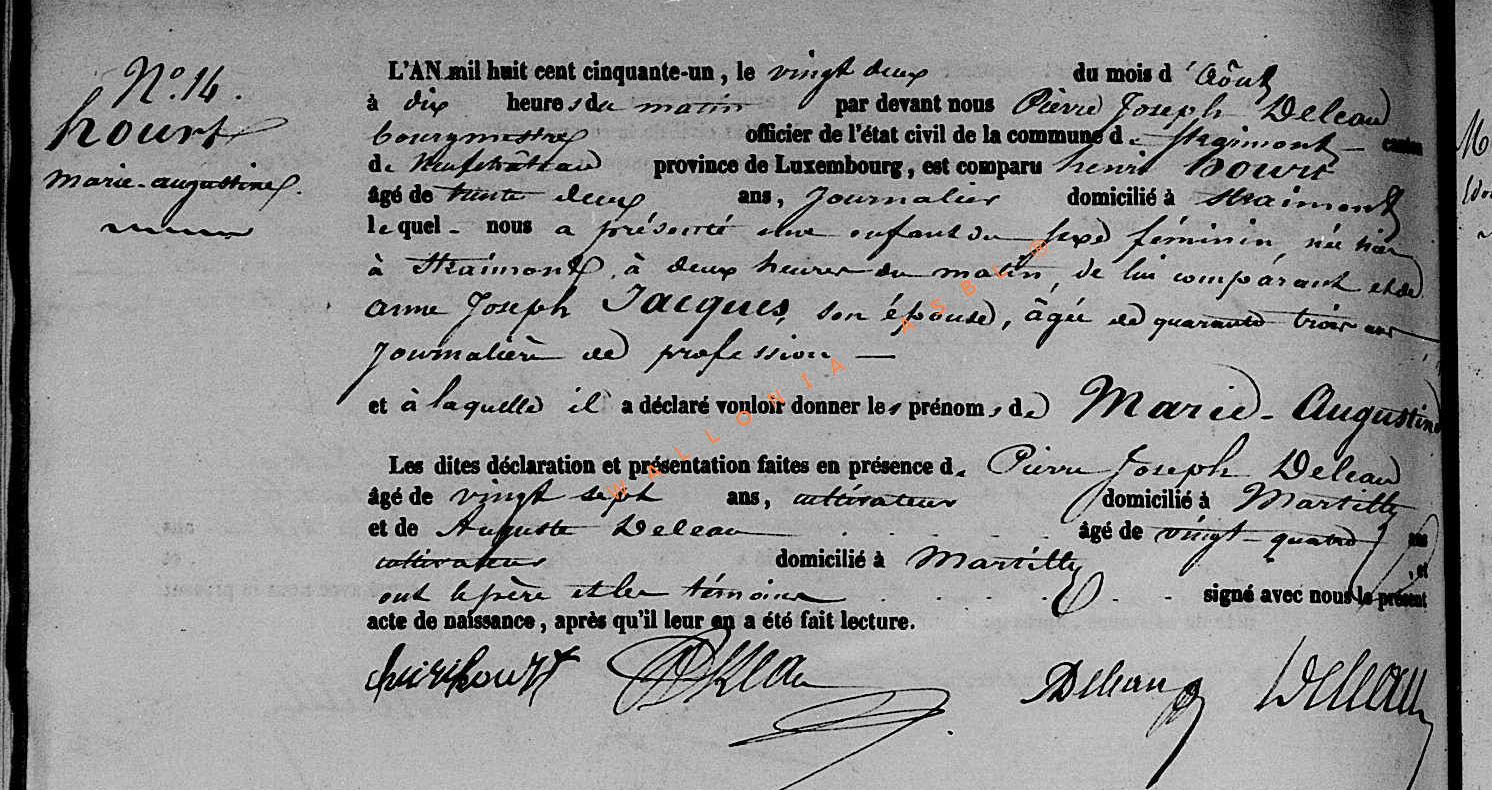 N° 14.
hourt
marie-augustine.
L'AN mil huit cent cinquante-un, le vingt deux du mois d'Août
à dix heures du matin par devant nous Pierre Joseph Deleau
bourgmestre officier de l'état civil de la commune de Straimont canton
de Neufchâteau province de Luxembourg, est comparu henri hourt
âgé de trente deux ans, journalier domicilié à Straimont
lequel nous a présenté une enfant du sexe féminin née hier
à Straimont, à deux heures du matin, de lui comparant et de
anne Joseph Jacques, son épouse, âgée de quarante trois ans
Journalière de profession —
et à laquelle il a déclaré vouloir donner les prénoms de Marie-Augustine
Les dites déclaration et présentation faites en présence de Pierre Joseph Deleau
âgé de vingt sept ans, cultivateur domicilié à Martilly
et de Auguste Deleau âgé de vingt-quatre ans
cultivateur domicilié à Martilly, et
ont le père et les témoins signé avec nous le présent
acte de naissance, après qu'il leur en a été fait lecture.
henri hourt Deleau Deleau
WALLONIA ASBL